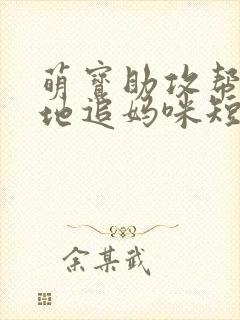 萌宝助攻帮
地追妈咪短
余某武